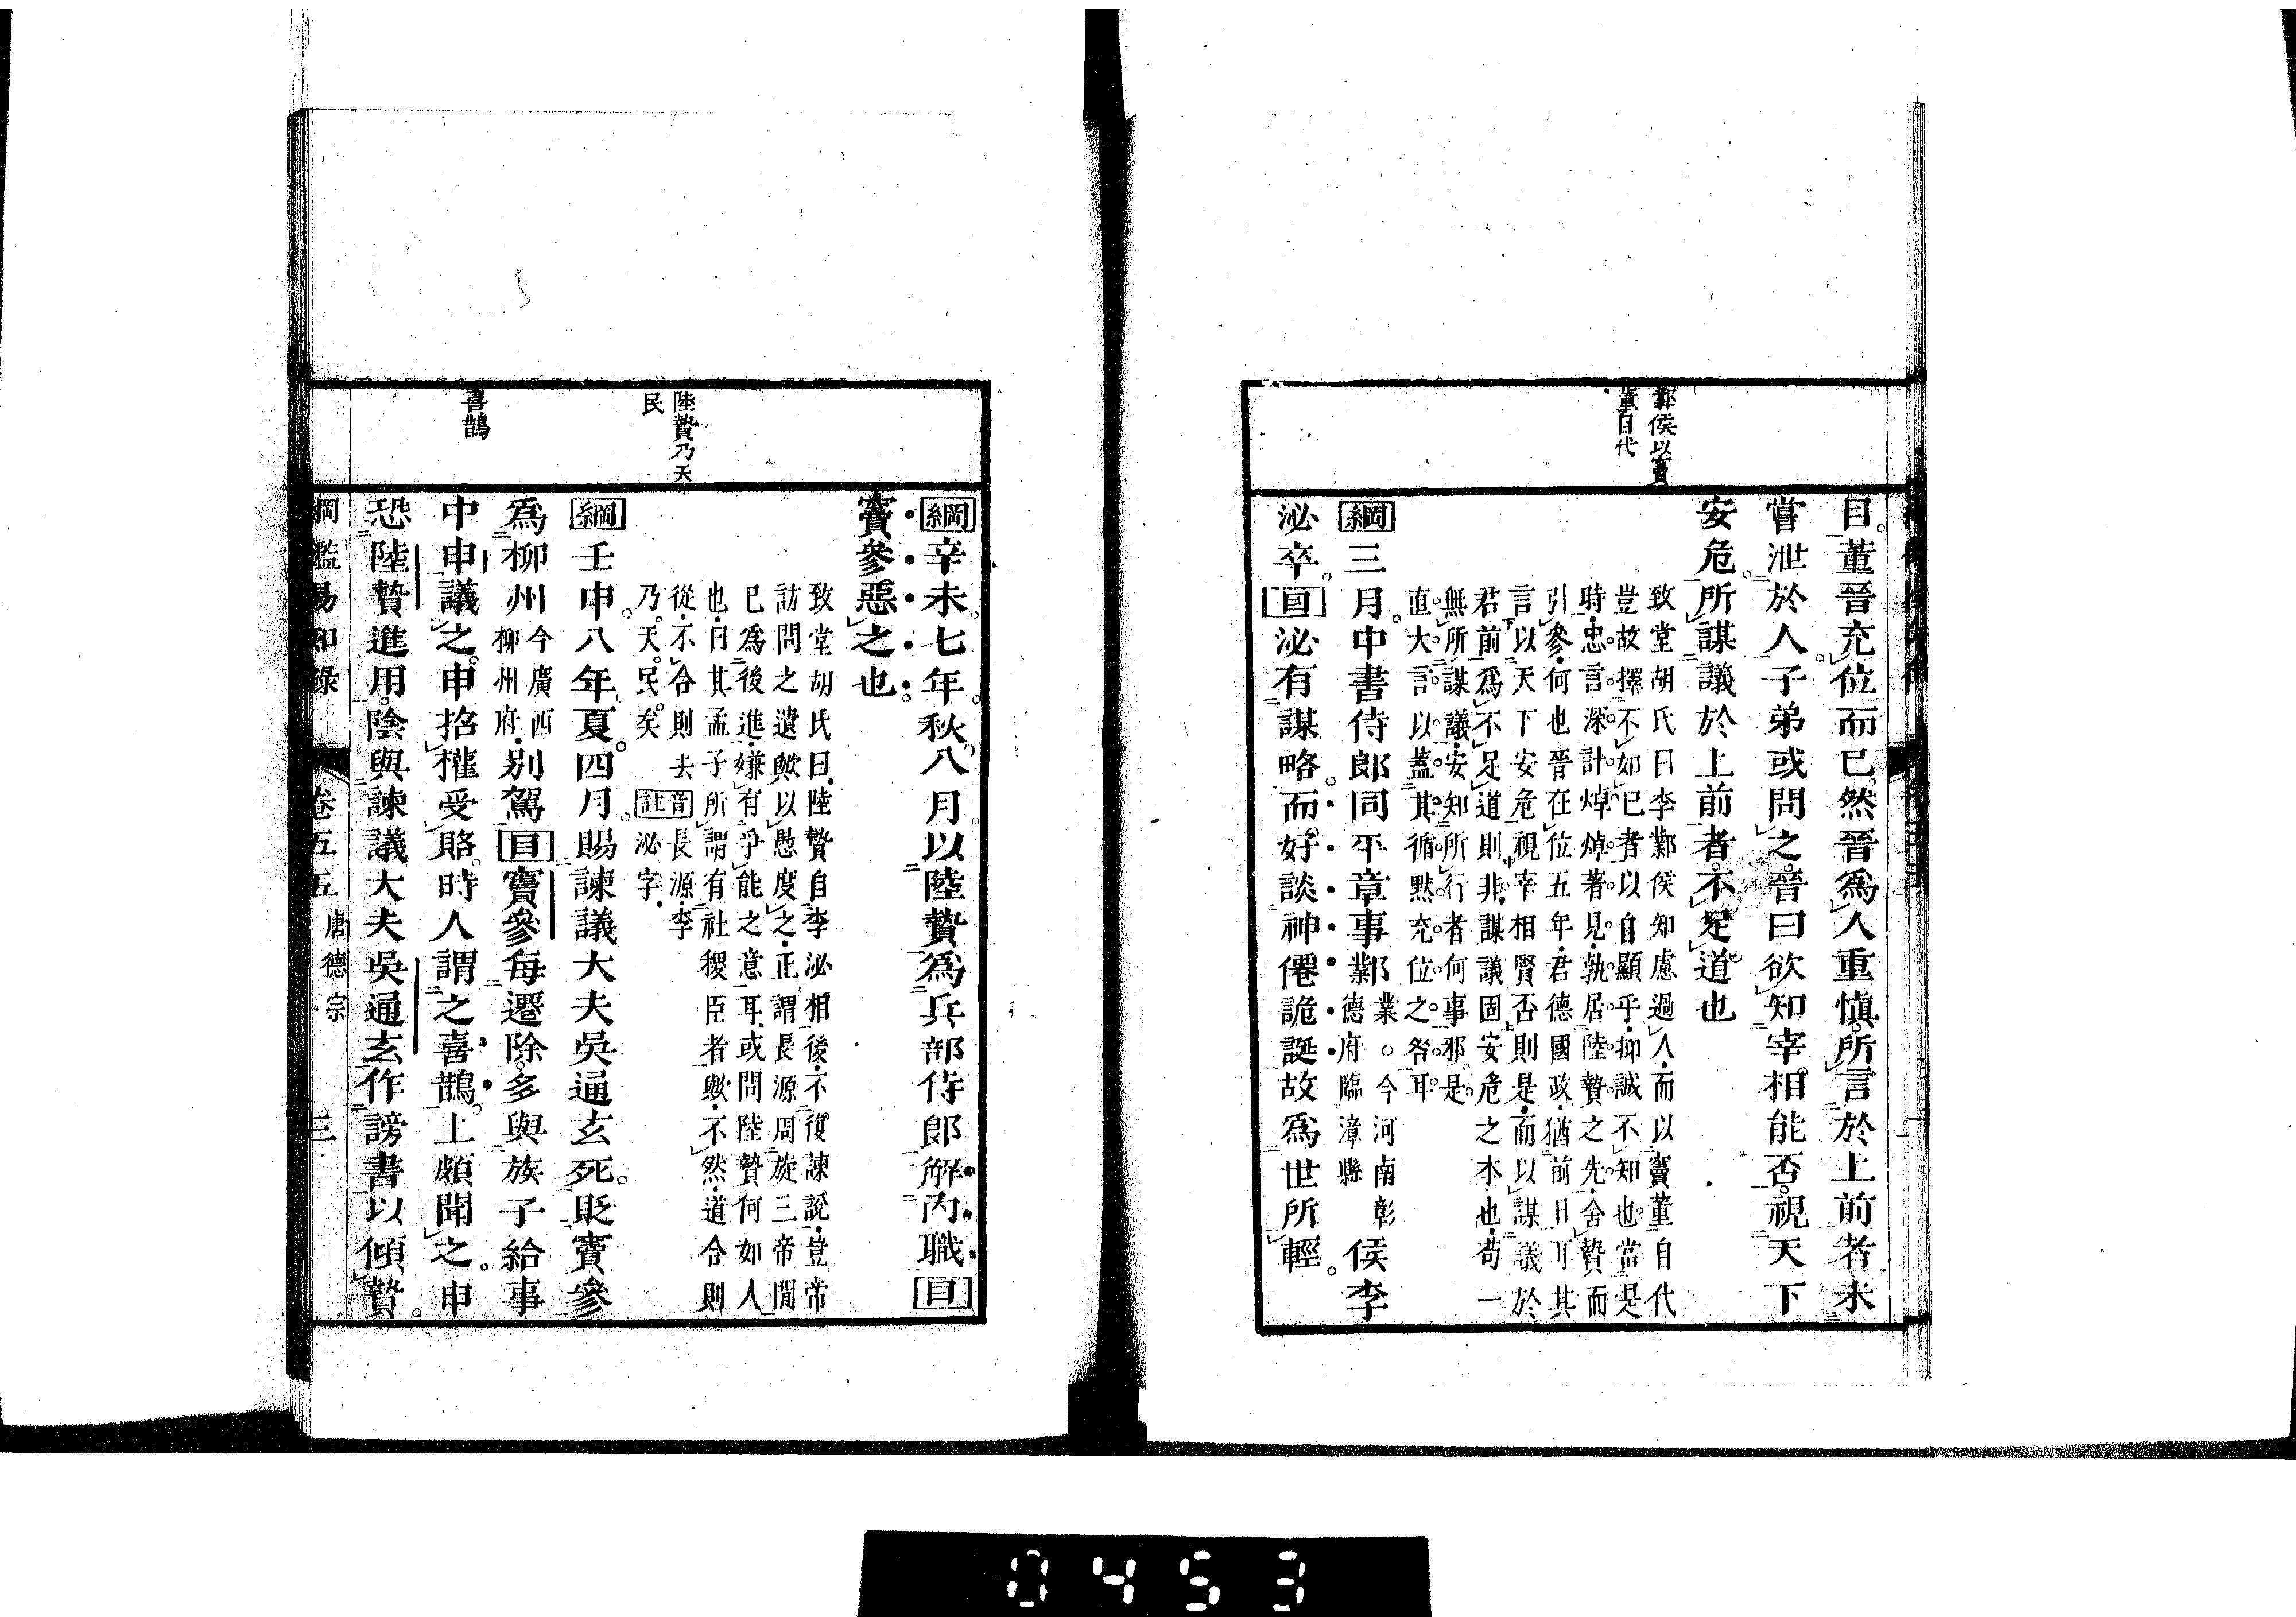 鄴侯以竇
董自代
目董晉充位而已然晉爲人重愼所言於上前者未
嘗泄於人子弟或問之晉曰欲知宰相能否視天下
安危所謀議於上前者不足道也
致堂胡氏曰李鄴侯知慮過人而以竇董自代
豈故擇不如已者以自顯乎抑誠不知也當是
時忠言深計焯焯著見孰居陸贄之先舍贄而
引參何也晉在位五年君德國政猶前日耳其
言以天下安危視宰相賢否則是而以謀議於
君前爲不足道則非謀議固安危之本也苟一
無所謀議安知所行者何事邪是
直大言以蓋其循默充位之咎耳
綱三月中書侍郎同平章事鄴業○今河南彰德府臨漳縣侯李
泌卒目泌有謀略而好談神僊詭誕故爲世所輕
陸贄乃天
民
喜鵲
綱辛未七年秋八月以陸贄爲兵部侍郎解內職目
竇參惡之也
致堂胡氏曰陸贄自李泌相後不復諫說豈帝
訪問之遺歟以愚度之正謂長源周旋三帝閒
已爲後進嫌有爭能之意耳或問陸贄何如人
也曰其孟子所謂有社稷臣者歟不然道合則
從不合則去音長源李
乃天民矣註泌字
綱壬申八年夏四月賜諫議大夫吳通玄死貶竇參
爲柳州今廣西柳州府別駕目竇參每遷除多與族子給事
中申議之申招權受賂時人謂之喜鵲上頗聞之申
恐陸贄進用陰與諫議大夫吳通玄作謗書以傾贄
綱鑑易知錄 卷五五 唐德宗 三
0453